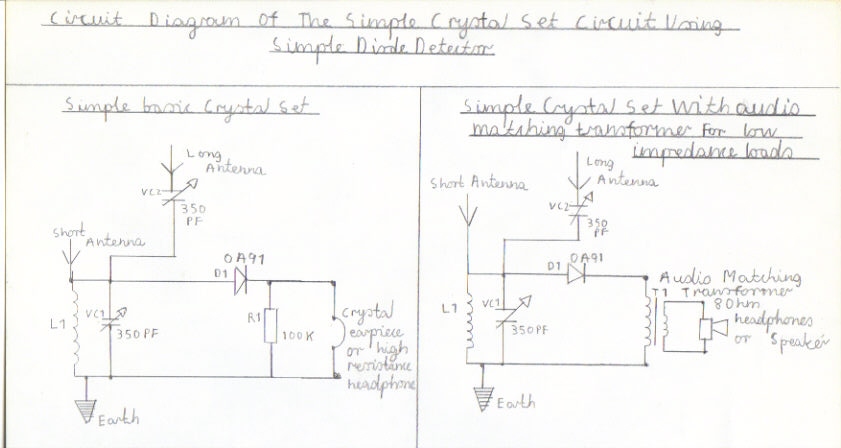 Circuit Diagram Of The Simple Crystal Set Circuit Using
Simple Diode Detector
Simple basic Crystal Set
Long
Antenna
VC2
350
PF
Short
Antenna
OA91
D1
L1
VC1
350PF
R1
100K
Crystal
earpiece
or high
resistance
headphone
Earth
Simple Crystal Set With audio
matching transformer For low
impedance loads
Long
Antenna
Short Antenna
VC2
350
PF
OA91
D1
L1
VC1
350PF
Audio Matching
T1 Transformer
8 Ohm
headphones
or Speaker
Earth